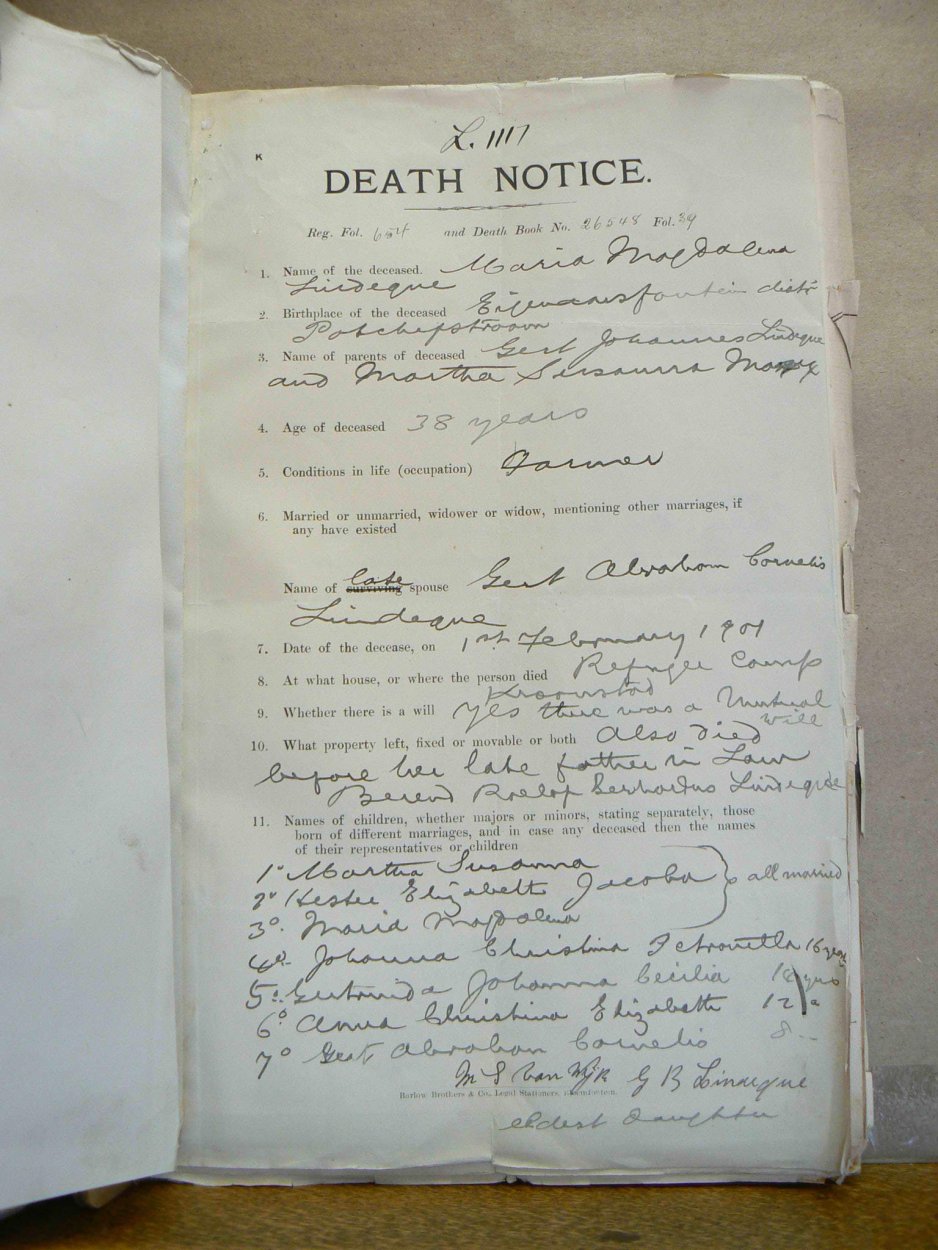 L. 1117
K
DEATH NOTICE.
Reg. Fol. 654 and Death Book No. 26548 Fol. 39
1. Name of the deceased. Maria Magdalena
Lindeque
2. Birthplace of the deceased distr
Potchefstroom
3. Name of parents of deceased Gert Johannes Lindeque
and Martha Susanna
4. Age of deceased 38 years
5. Conditions in life (occupation) Farmer
6. Married or unmarried, widower or widow, mentioning other marriages, if
any have existed
late
Name of surviving spouse Gert Abraham Cornelis
Lindeque
7. Date of the decease, on 1st February 1901
8. At what house, or where the person died Refugee Camp
Kroonstad
9. Whether there is a will Yes there was a Mutual
will
10. What property left, fixed or movable or both Also died
before her late father in Law
Berend Roelof Gerhardus Lindeque
11. Names of children, whether majors or minors, stating separately, those
born of different marriages, and in case any deceased then the names
of their representatives or children
1o Martha Susanna
2o Hester Elizabeth Jacoba all married
3o. Maria Magdalena
4o. Johanna Christina Petronella 16 years
5o. Johanna Cecilia yrs
6o Anna Christina Elizabeth 12
7o Gert Abraham Cornelis 8
M S van Wijk G B Lindeque
Barlow Brothers & Co. Legal Stationers, Bloemfontein.
eldest daughter